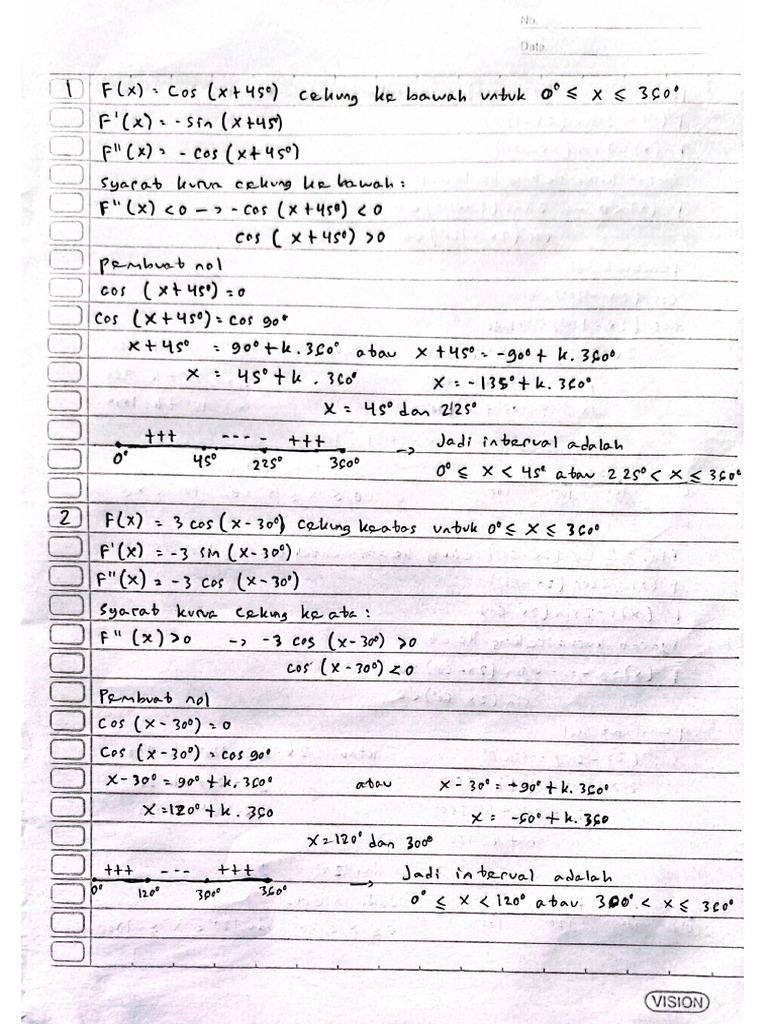 No.
Date
1 F(x) = cos (x+45°) cekung ke bawah untuk 0° ≤ x ≤ 360°
F'(x) = -sin (x+45)
F"(x) = - cos (x+45°)
Syarat kurva cekung ke bawah :
F"(x) < 0 --> - cos (x+45°) < 0
cos (x+45°) > 0
Pembuat nol
cos (x+45°) = 0
cos (x+45°) = cos 90°
x+45° = 90° + k . 360° atau x+45° = -90° + k . 360°
x = 45° + k . 360° x = -135° + k . 360°
x = 45° dan 225°
+++ ---- +++ -> Jadi interval adalah
0° 45° 225° 360° 0° ≤ x < 45° atau 225° < x ≤ 360°
2 F(x) = 3 cos (x-30°) cekung keatas untuk 0° ≤ x ≤ 360°
F'(x) = -3 sin (x-30°)
F"(x) = -3 cos (x-30°)
Syarat kurva cekung ke ata :
F"(x) > 0 -> -3 cos (x-30°) > 0
cos (x-30°) < 0
Pembuat nol
cos (x-30°) = 0
cos (x-30°) = cos 90°
x-30° = 90° + k . 360° atau x-30° = -90° + k . 360°
x = 120° + k . 360 x = -60° + k . 360
x = 120° dan 300°
+++ --- +++ -> Jadi interval adalah
0° 120° 300° 360° 0° ≤ x < 120° atau 300° < x ≤ 360°
VISION